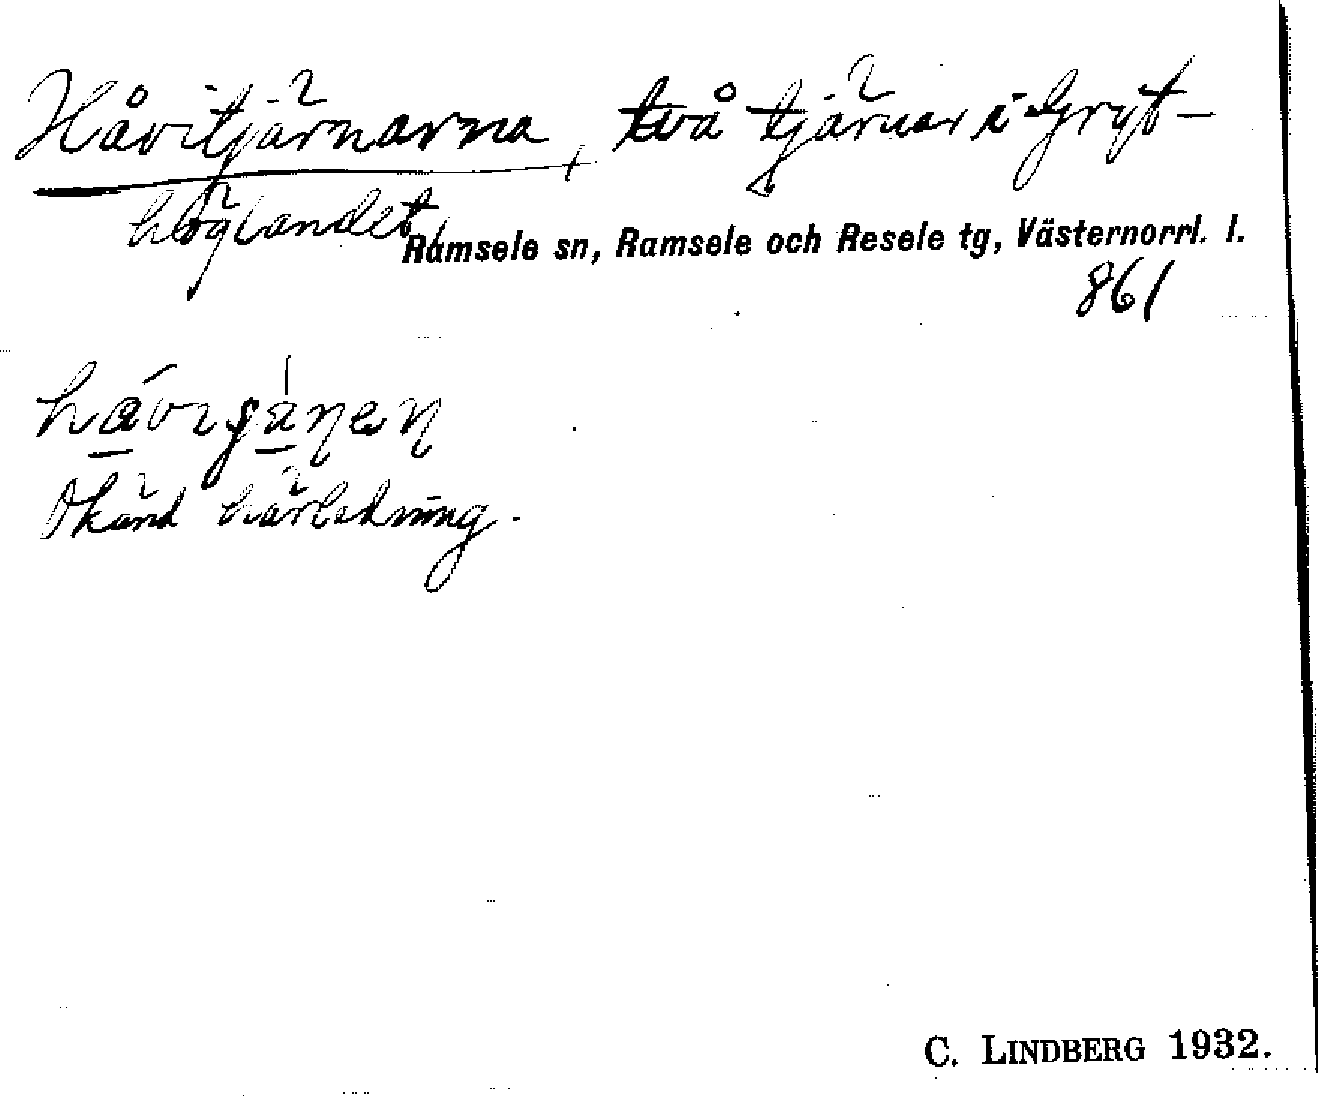 Håvitjärnarna, två tjärnar i Gryt-
höglandet,
Ramsele sn, Ramsele och Resele tg, Västernorrl. l.
861
Okänd härledning.
C. LINDBERG 1932.